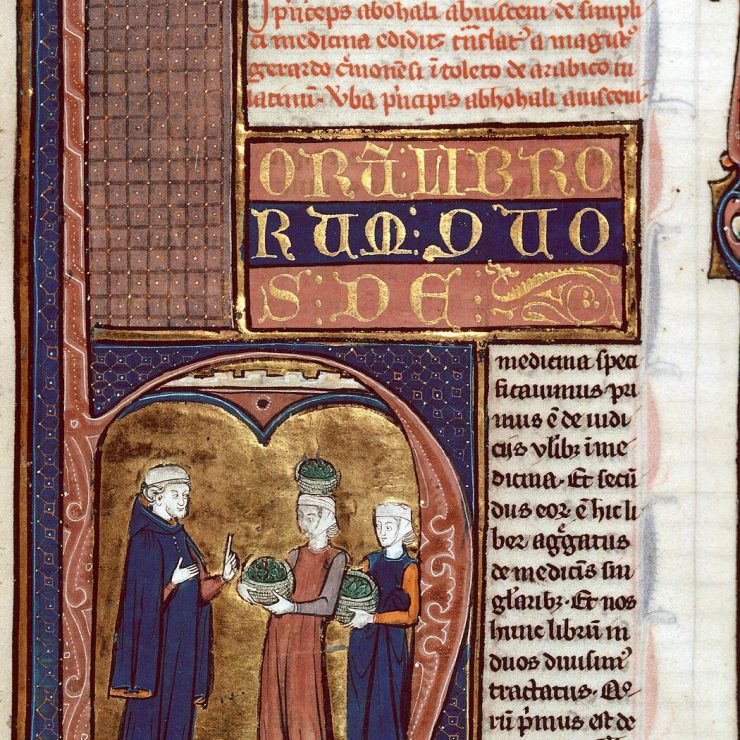 p̃nceps abohali abuiscem de simpli
ci medicina edidit t̃nslat' a magist°
gerardo c̃monesi ĩ toleto de arabico in
latinũ. Vba p̃ncipis abhohali auiscen.
ORŨ: LIBRO
RUM: QUO
S: DE
medicina speci
ficauimus. pri
mus ẽ de iudi
cijs vlib; ĩ me
dicina. Et secũ
dus eor ẽ hic li
ber ag̃gatus
de medicĩs sin
gl'arib;. Et nos
hunc librũ in
duos diuisim'
tractatus.
rũ p̃mus est de